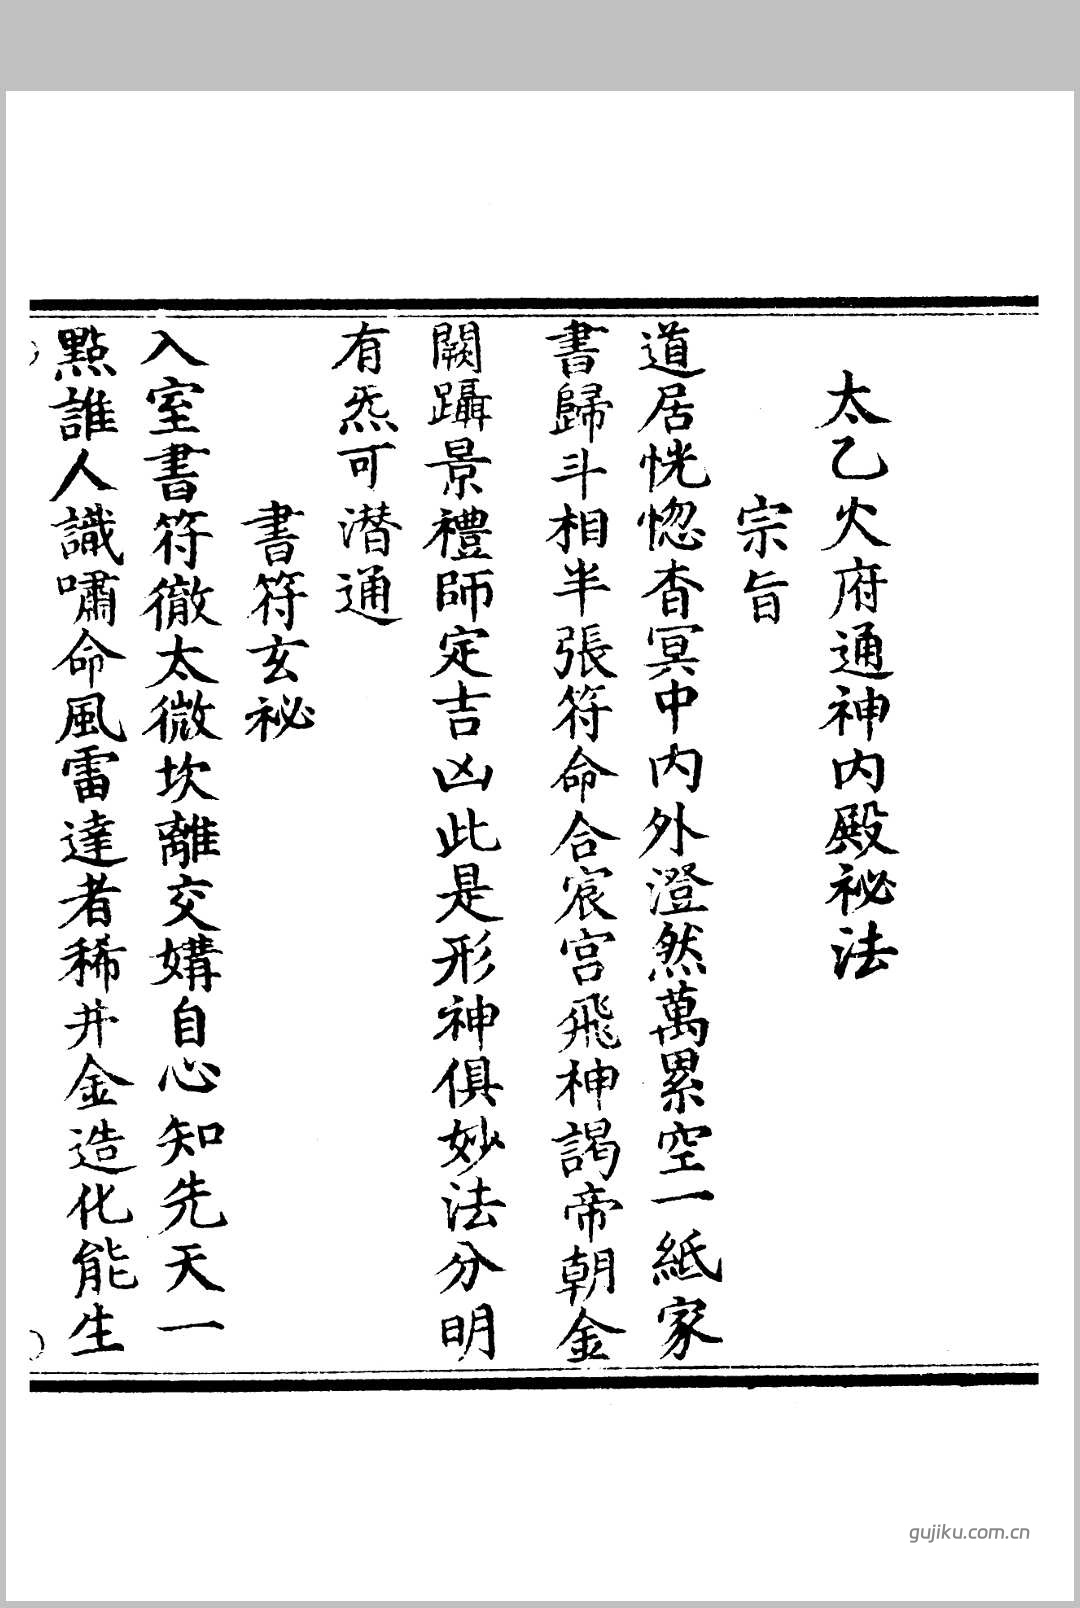 太乙火府通神內殿祕法
宗旨
道居恍惚杳冥中內外澄然萬累空一紙家
書歸斗相半張符命合宸宮飛神謁帝朝金
闕躡景禮師定吉凶此是形神俱妙法分明
有炁可潜通
書符玄祕
入室書符徹太微坎離交媾自心知先天一
點誰人識嘯命風雷達者稀井金造化能生
gujiku.com.cn